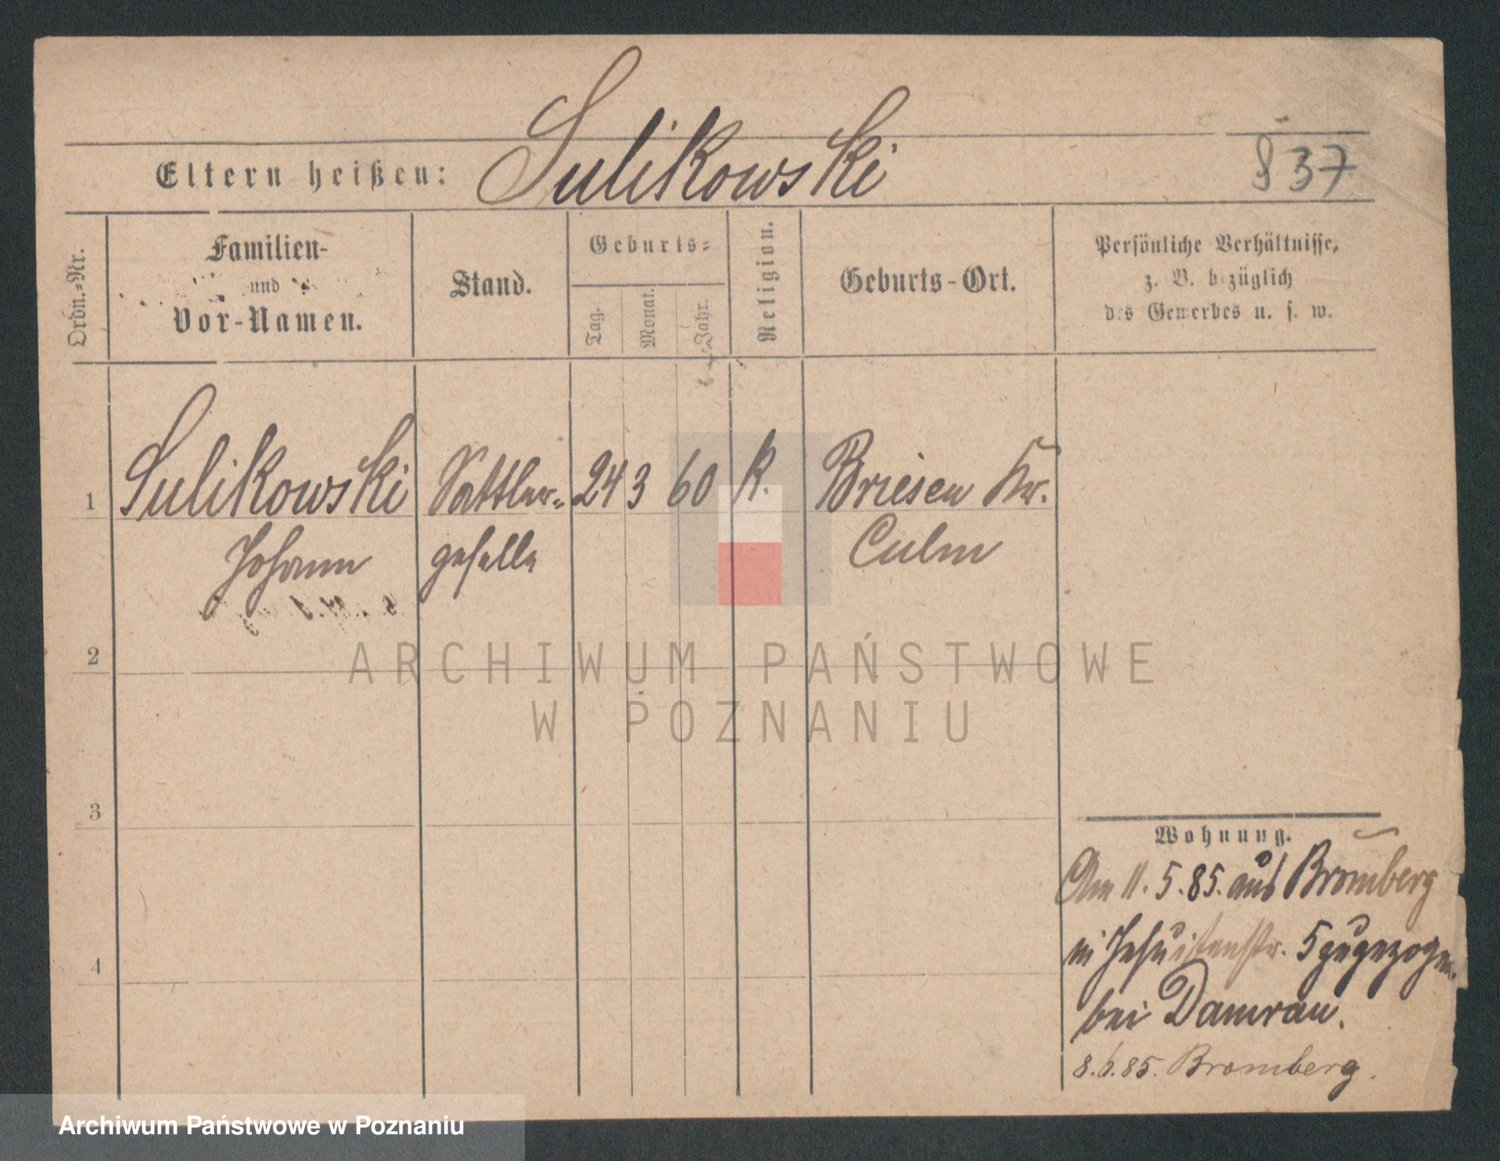 Sulikowski
Eltern heißen:
837
Ordn.-Nr.
Familien-
und
Vor-Namen.
Stand.
Geburts-
Tag.
Monat.
Jahr.
Religion.
Geburts-Ort.
Persönliche Verhältnisse,
z. B. bezüglich
des Gewerbes u. s. w.
1 Sulikowski Sattler- 24 3 60 K. Briesen Kr.
Johann geselle Culm
2
3
4
Wohnung.
Am 11.5.85. aus Bromberg
in Jesuitenstr. 5 zugezogen.
bei Damrau.
8.6.85. Bromberg.
ARCHIWUM PAŃSTWOWE
W POZNANIU
Archiwum Państwowe w Poznaniu